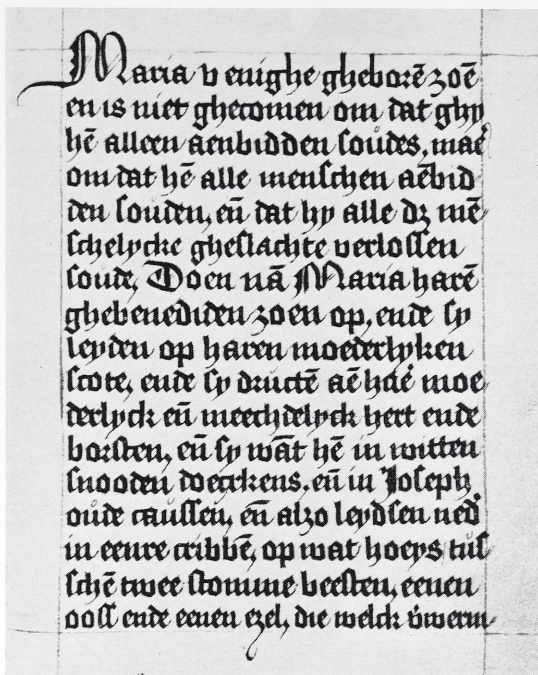 Maria v enighe gheborē zoē
en is niet ghecomen om dat ghy
hē alleen aenbidden soudes, maē
om dat hē alle menschen aēbid
den souden, eñ dat hy alle dz mē
schelycke gheslachte verlossen
soude, Doen nā Maria harē
ghebenediden zoen op, ende sy
leyden op haren moederlyken
scote, ende sy dructē aē haē moe
derlyck eñ meechdelyck hert ende
borsten, eñ sy wāt hē in witten
snooden doeckens. eñ in Joseph
oude caussen, eñ alzo leydsen ned
in eenre cribbē, op wat hoeys tus
schē twee stomme beesten, eenen
oosl ende eenen ezel, die welck v̄werm